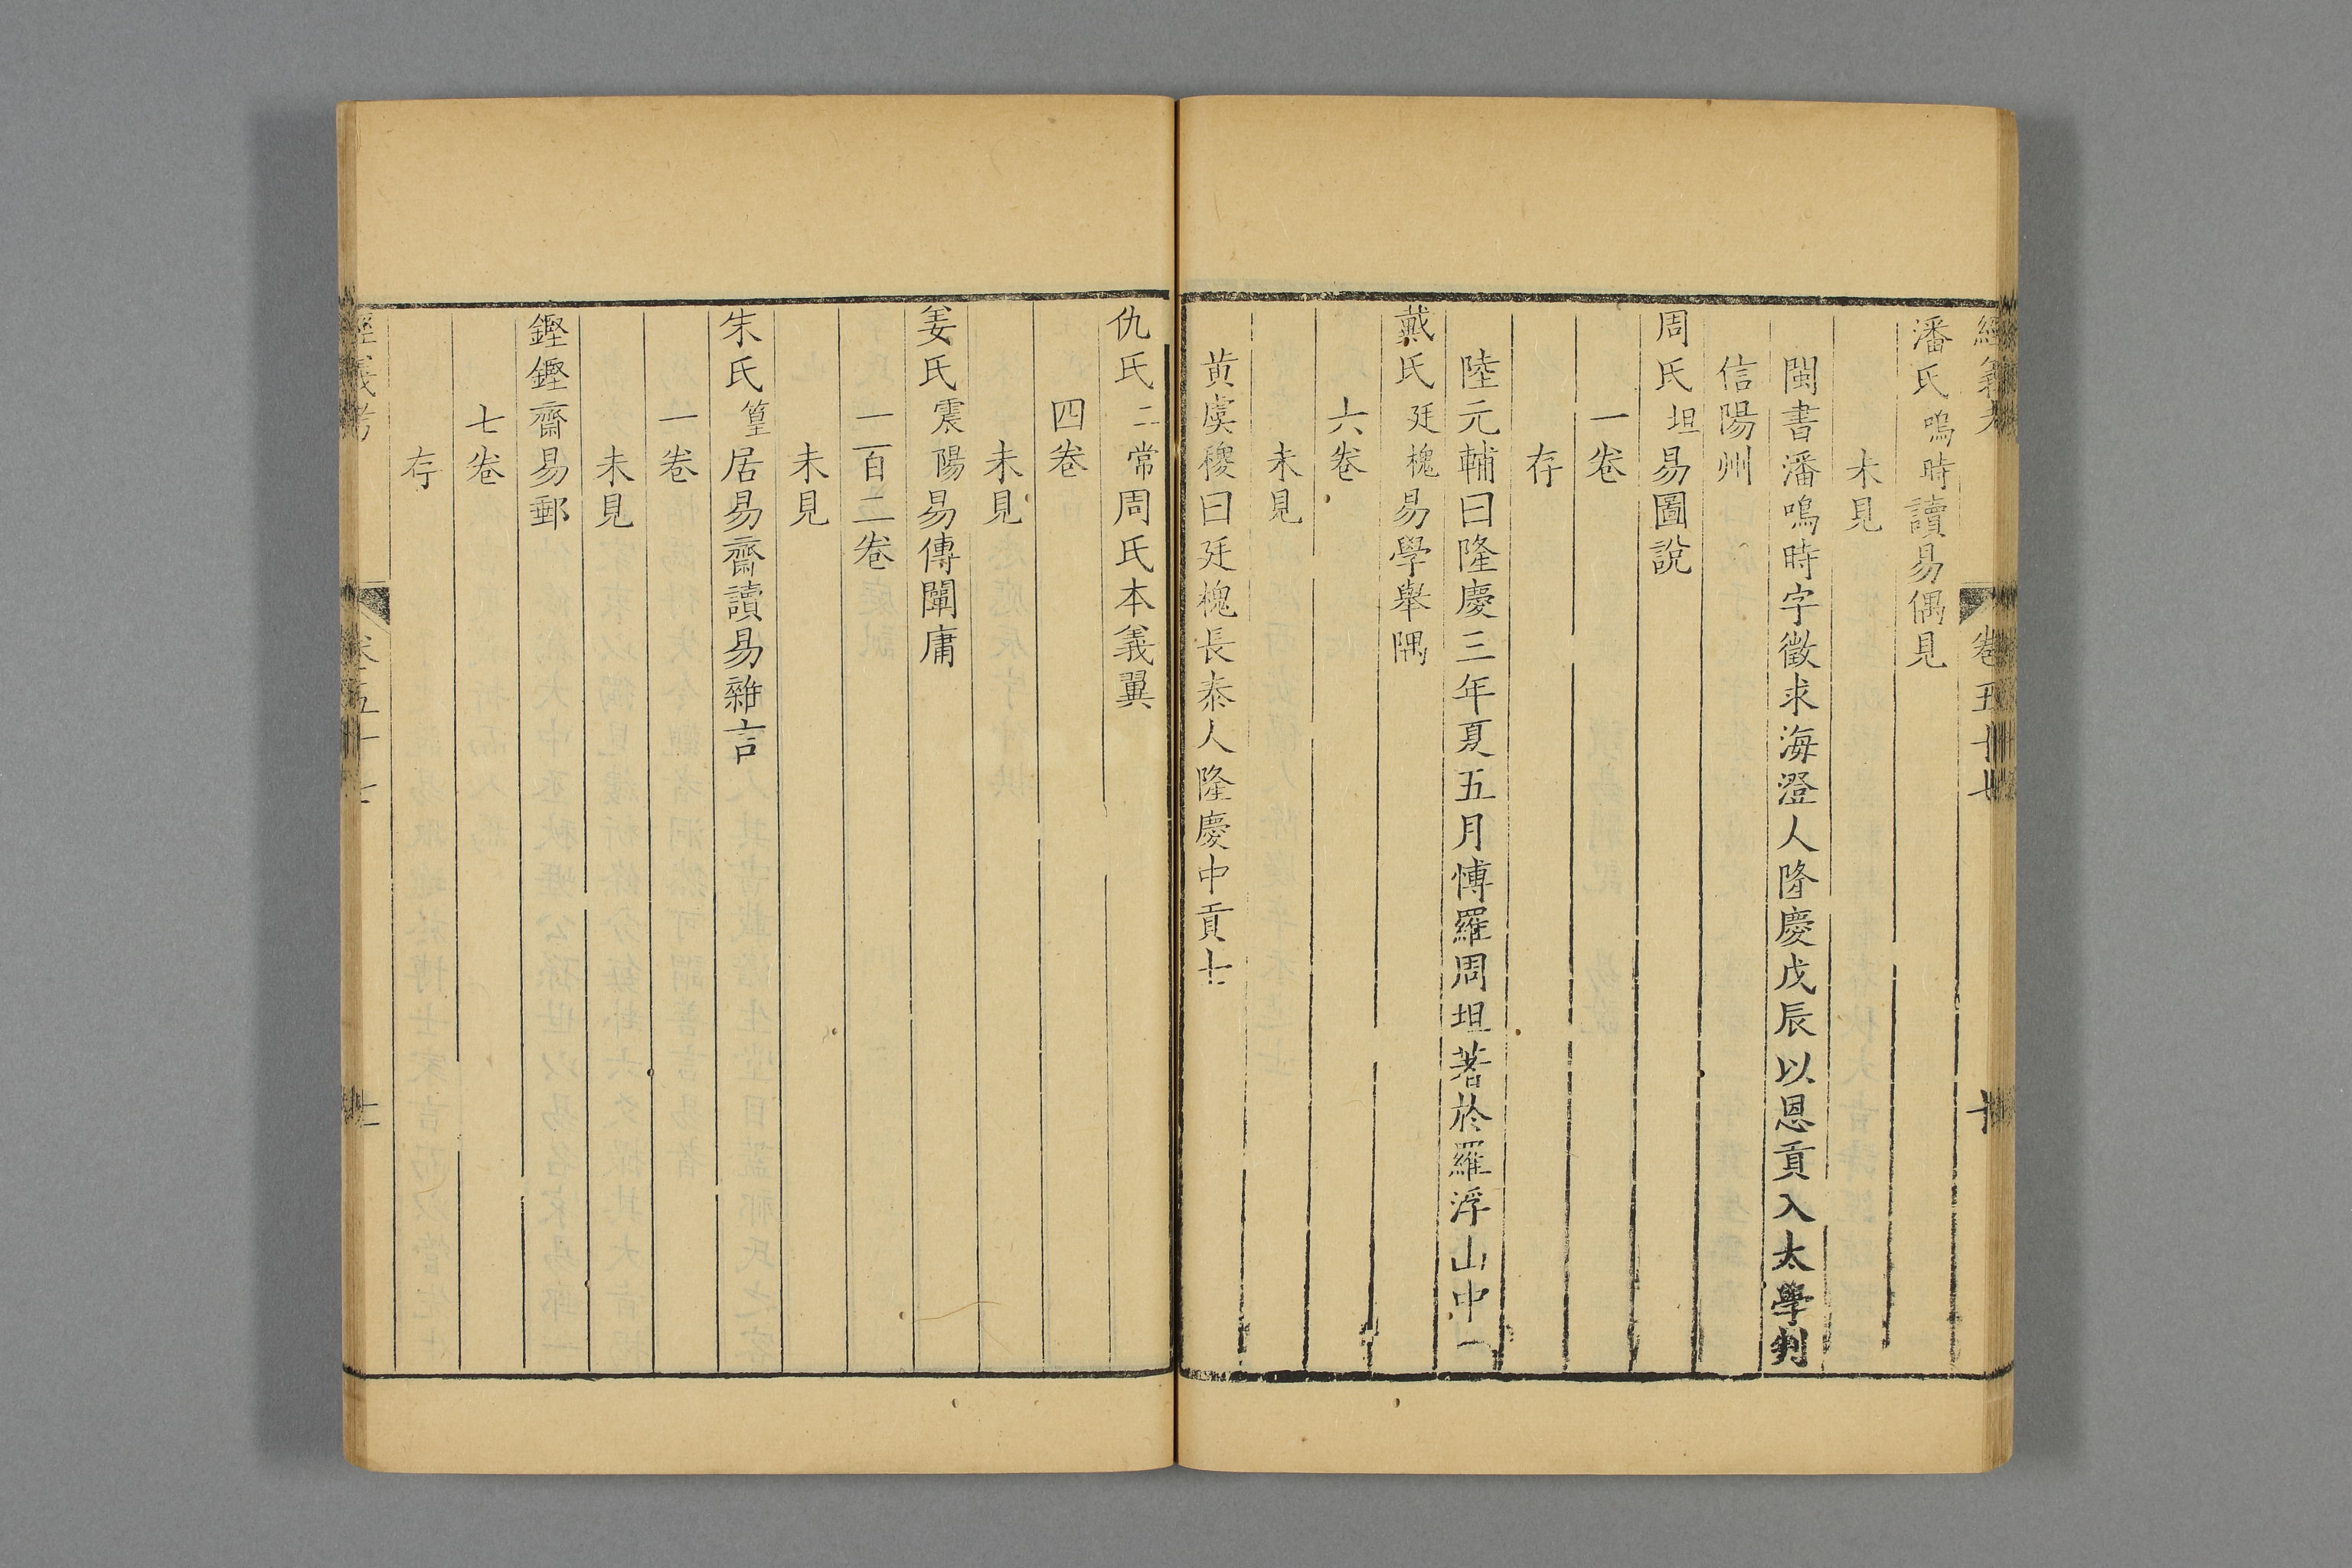 經義考 卷五十七
潘氏鳴時讀易偶見
未見
閩書潘鳴時字徵求海澄人隆慶戊辰以恩貢入太學判
信陽州
周氏坦易圖說
一卷
存
陸元輔曰隆慶三年夏五月博羅周坦著於羅浮山中一
戴氏廷槐易學舉隅
六卷
未見
黃虞稷曰廷槐長泰人隆慶中貢士
仇氏二常周氏本義翼
四卷
未見
姜氏震陽易傳闡庸
一百二卷
未見
朱氏篁居易齋讀易雜言
一卷
未見
鏗鏗齋易郵
七卷
存
經義考 卷五十七